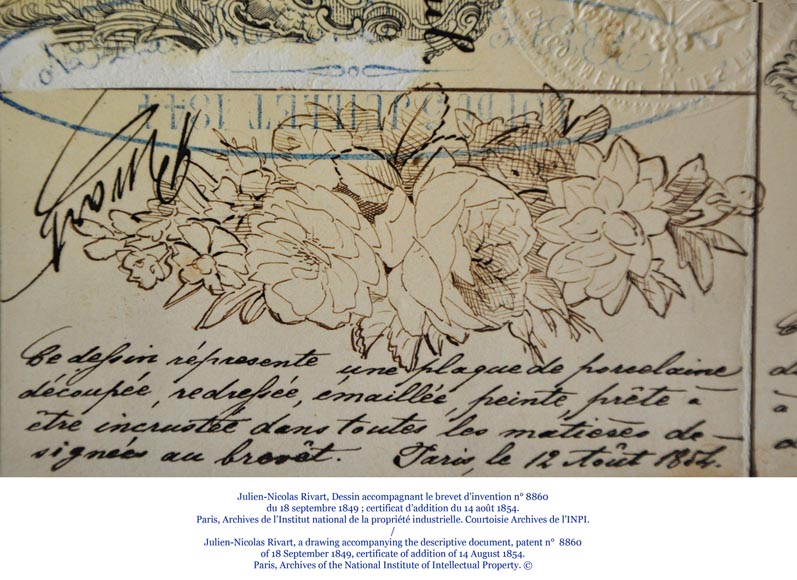 LOI DU 5 JUILLET 1844
Ce dessin répresente une plaque de porcelaine
découpée, redressée, émaillée, peinte, prête à
être incrustée dans toutes les matières dé-
signées au brevêt. Paris, le 12 Août 1854.
Julien-Nicolas Rivart, Dessin accompagnant le brevet d'invention n° 8860
du 18 septembre 1849 ; certificat d'addition du 14 août 1854.
Paris, Archives de l'Institut national de la propriété industrielle. Courtoisie Archives de l'INPI.
/
Julien-Nicolas Rivart, a drawing accompanying the descriptive document, patent n° 8860
of 18 September 1849, certificate of addition of 14 August 1854.
Paris, Archives of the National Institute of Intellectual Property. ©